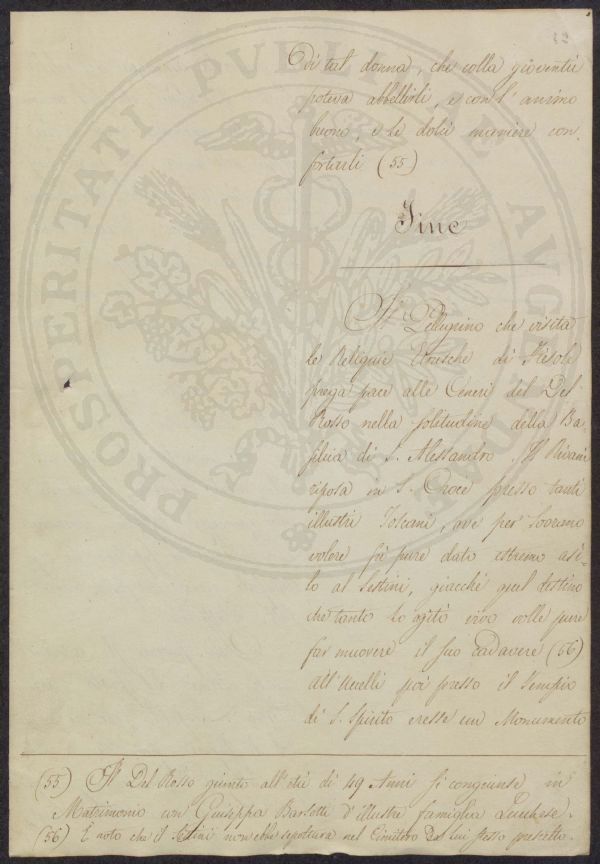 di tal donna, che colla gioventù
poteva abbellirli, e con l'animo
buono, e le dolci maniere con
fortarli (55)
Fine
Il Pellegrino che visita
le Reliquie Etrusche di Fiesole
prega pace alle Ceneri del Del
Rosso nella solitudine della Ba-
silica di S. Alessandro. Il
riposa in S. Croce presso tanti
illustri Toscani, ove per Sovrano
volere fù pure dato estremo asi-
lo al Sestini, giacchè quel destino
che tanto lo agitò vivo volle pure
far muovere il suo Cadavere (56)
All'Uccelli poi presso il Tempio
di S. Spirito eresse un Monumento
(55) Il Del Rosso giunto all'età di 49 Anni si congiunse in
Matrimonio con Giuseppa d'illustre famiglia Lucchese.
(56) È noto che il Sestini non ebbe sepoltura nel Cimitero da lui stesso prescelto.
PROSPERITATI PVBLICAE AVGENDAE